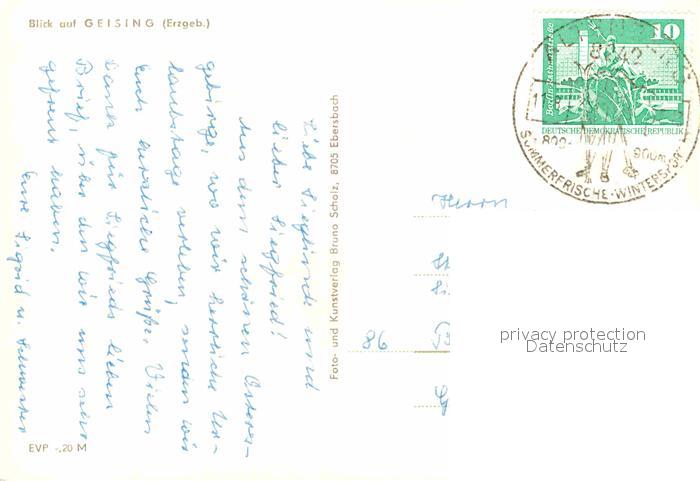 Blick auf GEISING (Erzgeb.)
Liebe Sieglinde und
lieber Siegfried!
Aus dem schönen Osterz-
gebirge, wo wir herrliche Ur-
laubstage verleben, senden wir
Euch herzliche Grüße. Vielen
Dank für Siegfrieds lieben
Brief, über den wir uns sehr
gefreut haben.
Eure Sigrid u. Schwester
EVP -,20 M
Foto- und Kunstverlag Bruno Scholz, 8705 Ebersbach
10
Berlin-Rathausstraße
DEUTSCHE DEMOKRATISCHE REPUBLIK
8242
800-
900m
SOMMERFRISCHE · WINTERSPORT
Herrn
86
privacy protection
Datenschutz